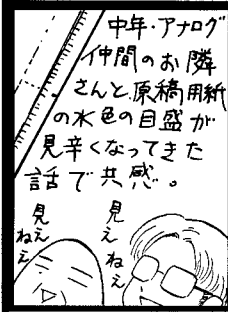 中年・アナログ
仲間のお隣
さんと、原稿用紙
の水色の目盛が
見辛くなってきた
話で共感。
見えねえ
見えねえ